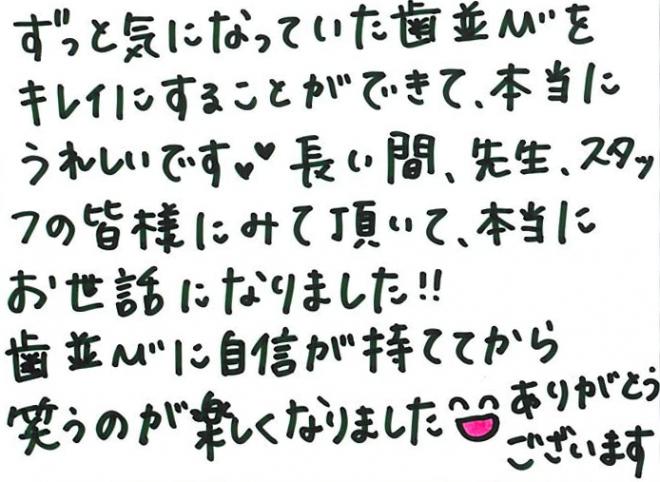 ずっと気になっていた歯並びを
キレイにすることができて、本当に
うれしいです♥♥ 長い間、先生、スタッ
フの皆様にみて頂いて、本当に
お世話になりました!!
歯並びに自信が持ててから
笑うのが楽しくなりました
ありがとう
ございます